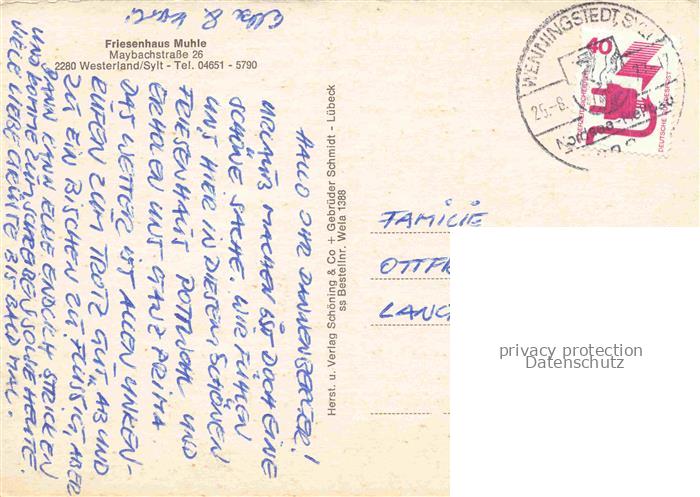 Friesenhaus Muhle
Maybachstraße 26
2280 Westerland/Sylt - Tel. 04651 - 5790
HALLO IHR DANNENBERGER!
URLAUB MACHEN IST DOCH EINE
SCHÖNE SACHE. WIR FÜHLEN
UNS HIER IN DIESEM SCHÖNEN
FRIESENHAUS POTTWOHL UND
ERHOLEN UNS GANZ PRIMA.
DAS WETTER IST ALLEN UNKEN-
RUFEN ZUM TROTZ GUT, AB UND
ZU EIN BISCHEN ZU FLÜSSIG, ABER
DANN KANN ELKE ENDLICH STRICKEN
UND KOMME ZUM SCHREIBEN SO WIE HEUTE.
VIELE LIEBE GRÜSSE BIS BALD MAL.
Elke &
Herst. u. Verlag Schöning & Co + Gebrüder Schmidt - Lübeck
ss Bestellnr. Wela 1388
WENNINGSTEDT, SYLT
25.-8.
Nordsee-Heilbad
40
DEUTSCHE BUNDESPOST
FAMILIE
OTTFR
LANG
privacy protection
Datenschutz